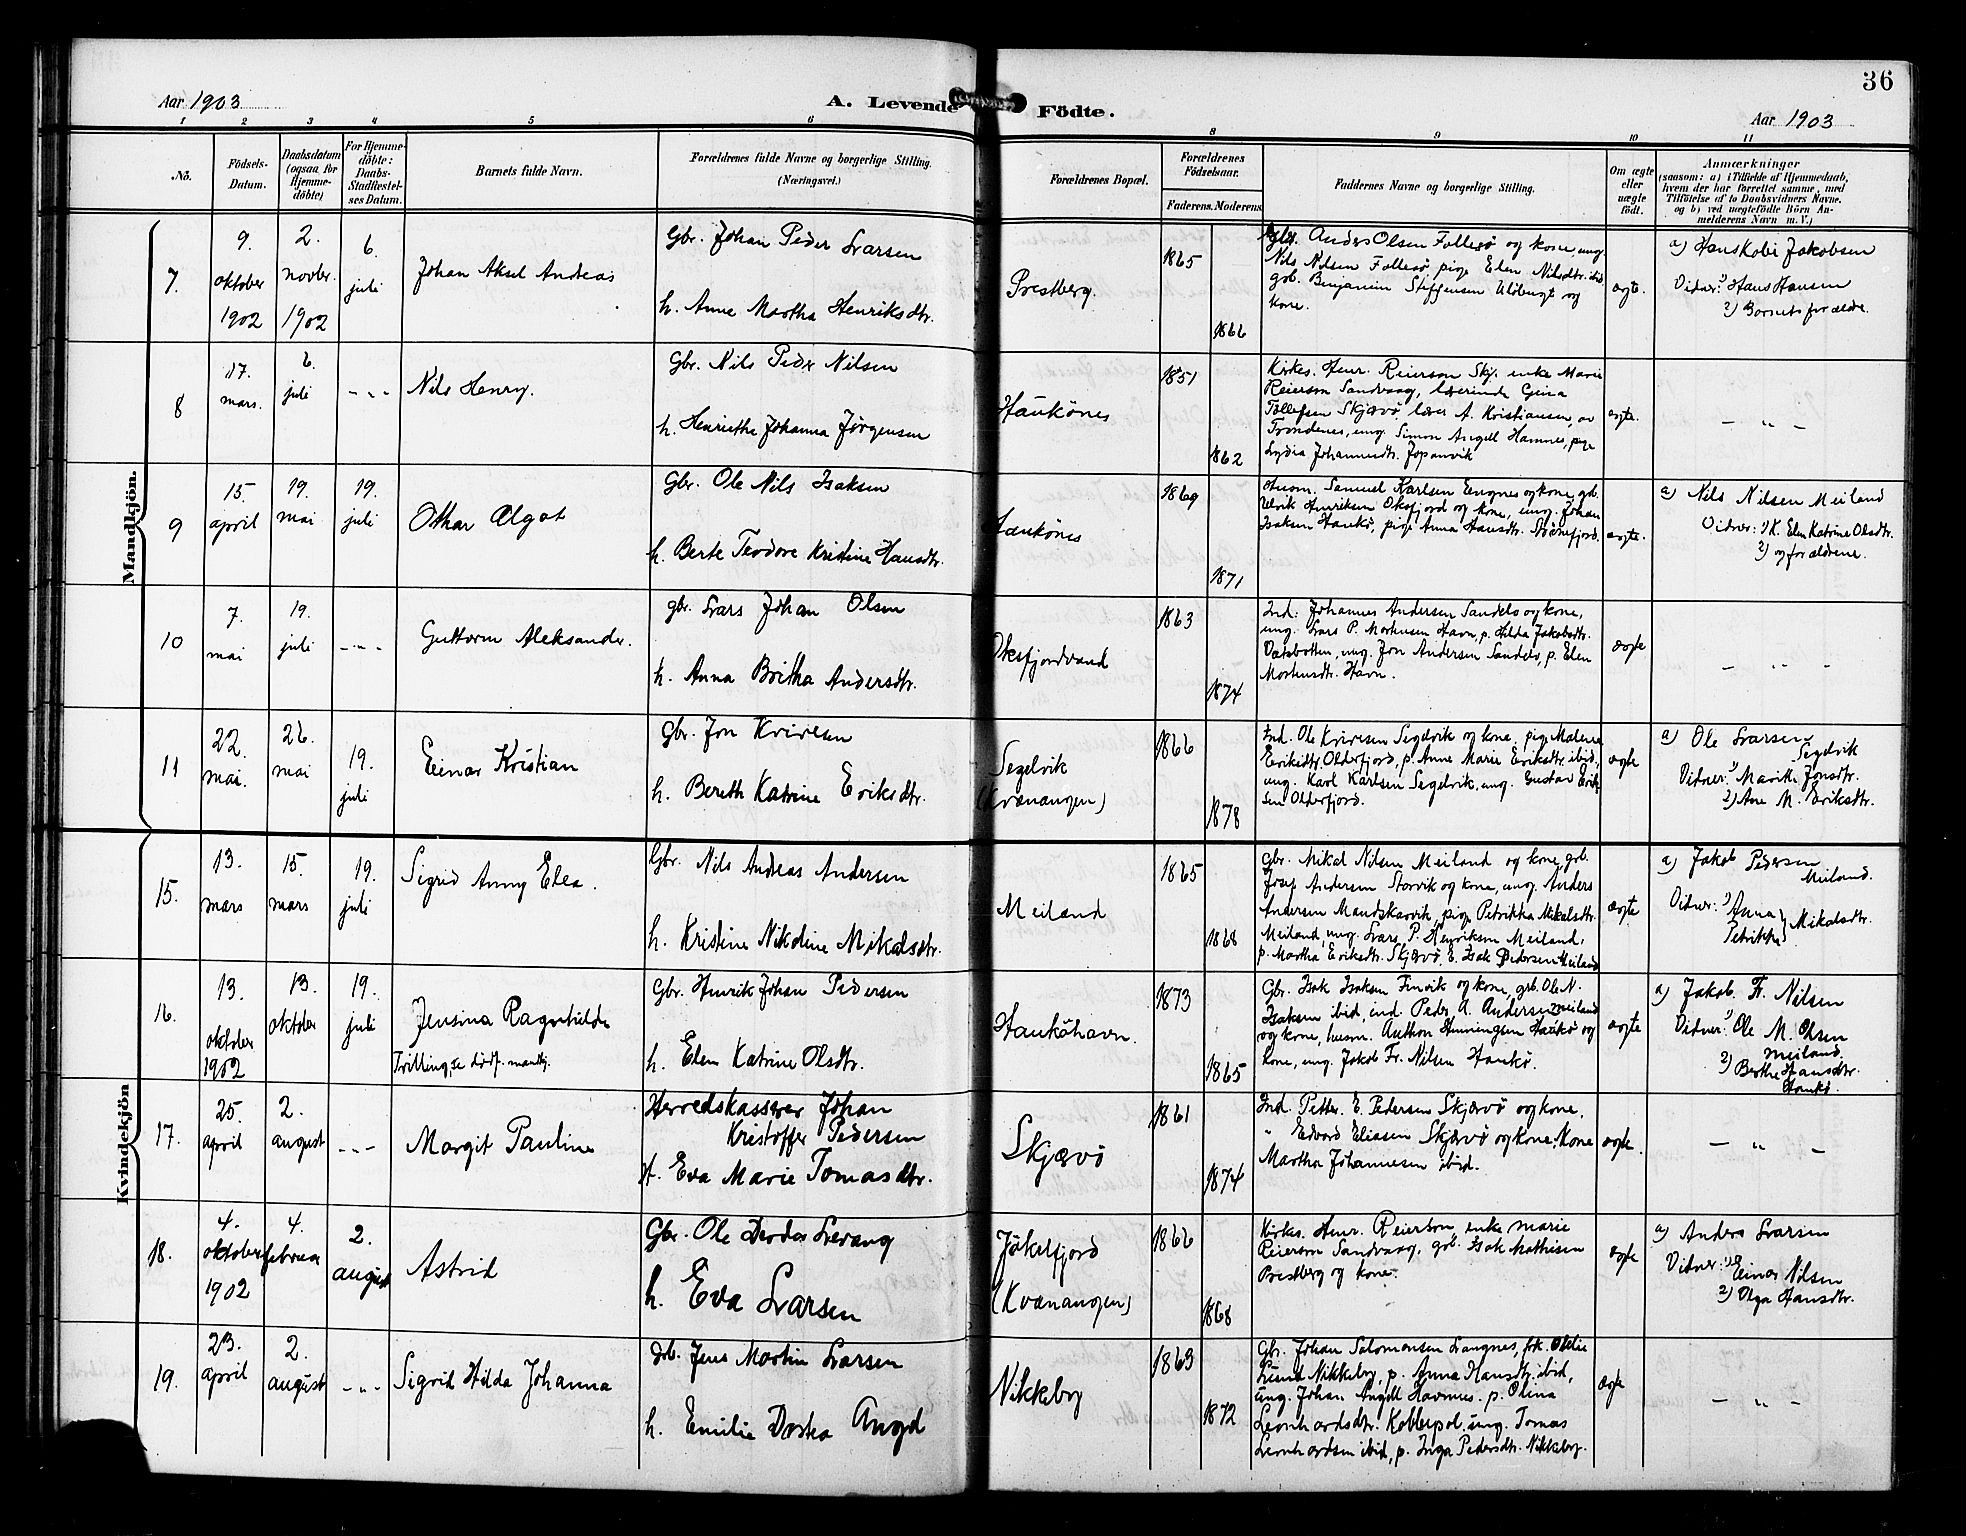 36
Aar 1903
A. Levende Födte.
Aar 1903
1 2 3 4 5 6 8 9 10 11
No.
Födsels-Datum.
Daabsdatum (ogsaa for Hjemme-döbte)
For Hjemme-döbte: Daabs-Stadfæstel-ses Datum.
Barnets fulde Navn.
Forældrenes fulde Navne og borgerlige Stilling. (Næringsvei.)
Forældrenes Bopæl.
Forældrenes Födselsaar.
Faderens. Moderens.
Faddernes Navne og borgerlige Stilling.
Om ægte eller uægte födt.
Anmærkninger
(saasom: a) i Tilfælde af Hjemmedaab,
hvem der har forrettet samme, med
Tilföielse af to Daabsvidners Navne.
og b) ved uægtefödte Börn An-
melderens Navn m. V.)
Mandkjön.
7.
9. oktober 1902
2. novbr. 1902
6. juli
Johan Aksel Andreas
Gbr. Johan Peder Larsen
h. Anne Martha Henriksdtr.
Prestberg.
1865
1866
Gbr. Anders Olsen Follesø og kone, ung.
Nils Nilsen Follesø, pige Elen Nilsdtr. ibid,
gb. Benjamin Steffensen og
kone.
ægte.
a) Hans Jakobsen
Vidner: 1) Hans Hansen
2) Barnets forældre.
8
17. mars.
6. juli
- " -
Nils Henry.
Gbr. Nils Peder Nilsen
h. Henriethe Johanna Jørgensen
Haukönes
1851
1862
Kirkes. Henr. Reierson Skj. enke Marie
Reierson Sandvaag, lærerinde Gina
Tollefsen Skjærvø, lærer A. Kristiansen, av
Trondenes, ung. Simon Angell Hamnes, pige
Lydia Johannesdtr.
ægte.
- " -
9
15. april
19. mai
19. juli
Othar Algot
Gbr. Ole Nils Isaksen
h. Berte Teodore Kristine Hansdtr.
Haukönes
1869
1871
Husm. Samuel Karlsen Engnes og kone, gb.
Ulrik Henriksen Oksfjord og kone, ung. Johan
Isaksen Haukø, pige Anna Hansdtr.
ægte.
a) Nils Nilsen Meiland
Vidner: 1) K. Elen Katrine Olsdtr.
2) og forældrene.
10
7. mai
19. juli
- " -
Guttorm Aleksander.
gbr. Lars Johan Olsen
h. Anna Britha Andersdtr.
Oksfjordvand
1863
1874
Ind. Johannes Andersen Sandelo og kone,
ung. Lars P. Mortensen Havn, p. Hilda Jakobsdtr.
Vatsbotten, ung. Jon Andersen Sandelo, p. Elen
Mortensdtr. Havn.
ægte
- " -
11
22. mai.
26. mai
19. juli
Einar Kristian
Gbr. Jon Krivesen
h. Bereth Katrine Eriksdtr.
Segelvik
(Kvænangen)
1866
1878
Ind. Ole Krivesen Segelvik og kone, pige Malena
Eriksdtr Olderfjord, p. Anne Marie Eriksdtr. ibid,
ung. Karl Karlsen Segelvik, ung. Gustav Erik-
sen Olderfjord.
ægte
a) Ole Larsen
Segelvik
Vidner: 1) Marith Jonsdtr.
2) Ane M. Eriksdtr.
Kvindekjön
15.
13. mars
15. mars
19. juli
Sigrid Anny Elea.
Gbr. Nils Andreas Andersen
h. Kristine Nikoline Mikalsdtr.
Meiland
1865
1868
Gbr. Mikal Nilsen Meiland og kone, grb.
Josef Andersen Storvik og kone, ung. Anders
Andersen Mandskarvik, pige Petrikka Mikalsdtr.
Meiland, ung. Lars P. Henriksen Meiland,
p. Martha Eriksdtr. Skjærvø, E. Isak Pedersen Meiland
ægte
a) Jakob Pedersen
Meiland.
Vidner: 1) Anna
Petrikke } Mikalsdtr.
16.
13. oktober 1902
13. oktober
19. juli
Jensina Ragnhilde
Trilling, se dødf. mandkj.
Gbr. Henrik Johan Pedersen
h. Elen Katrine Olsdtr.
Haukøhavn.
1873
1865
Gbr. Isak Isaksen Finvik og kone, grb. Ole N.
Isaksen ibid, ind. Peder A. Andersen Meiland
og kone, husm. Anthon Henningsen Haukø og
kone, ung. Jakob Fr. Nilsen Haukø.
ægte
a) Jakob Fr. Nilsen
Vidner: 1) Ole M. Olsen
Meiland.
2) Berthe Hansdtr.
Haukø.
17.
25. april
2. august
- " -
Margit Pauline
Herredskasserer Johan
Kristoffer Pedersen
H. Eva Marie Tomasdtr.
Skjærvø
1861
1874
Ind. Petter E. Pedersen Skjærvø og kone,
" Edvard Eliasen Skjærvø og kone, Kone
Martha Johannesen ibid.
ægte.
- " -
18.
4. oktober 1902
4. februar
2. august
Astrid
Gbr. Ole Peder Levang
h. Eva Larsen
Jøkelfjord
(Kvænangen)
1866
1868
Kirkes. Henr. Reierson, enke Marie
Reierson Sandvaag, grb. Isak Mathisen
Prestberg og kone.
ægte
a) Anders Larsen
Vidner: 1) Einar Nilsen
2) Olga Hansdtr.
19.
23. april
2. august
- " -
Sigrid Hilda Johanna
Grb. Jens Martin Larsen
h. Emilie Dortea Angel
Nikkeby
1869
1872
Gbr. Johan Salomonsen Langnes, frk. Otelie
Lund Nikkeby, p. Anna Hansdtr. ibid,
ung. Johan Angell Havnnes, p. Olina
Leonhardsdtr. Kobberpol. ung. Tomas
Leonhardsen ibid, p. Inga Pedersdtr. Nikkeby.
ægte
- " -